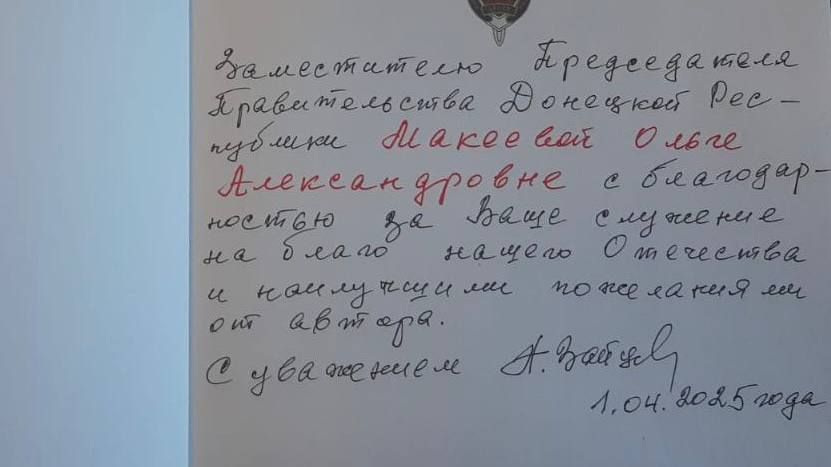 Заместителю Председателя
Правительства Донецкой Рес-
публики Макеевой Ольге
Александровне с благодар-
ностью за Ваше служение
на благо нашего Отечества
и наилучшими пожеланиями
от автора.
С уважением А. Зайцев
1.04.2025 года